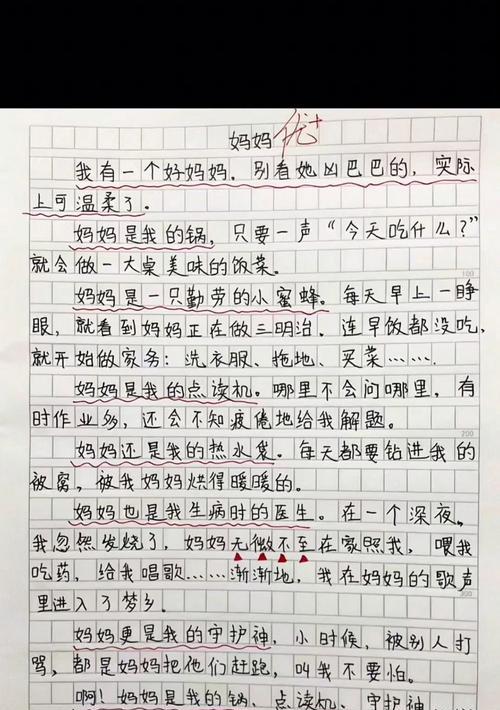 妈妈 优+
我有一个好妈妈。别看她凶巴巴的，实际
上可温柔了。
妈妈是我的锅，只要一声“今天吃什么？”
就会做一大桌美味的饭菜。
100
妈妈是一只勤劳的小蜜蜂。每天早上一睁
眼，就看到妈妈正在做三明治。连早饭都没吃，
就开始做家务：洗衣服、拖地、买菜……
妈妈是我的点读机。哪里不会问哪里，有
时作业多，还会不知疲倦地给我解题。
200
妈妈还是我的热水袋。每天都要钻进我的
被窝，被我妈妈烘得暖暖的。
妈妈也是我生病时的医生。在一个深夜，
我忽然发烧了，妈妈无微不至在家照我，喂我
吃药，给我唱歌……渐渐地，我在妈妈的歌声
里进入了梦乡。
300
妈妈更是我的守护神，小时候，被别人打
骂，都是妈妈把他们赶跑，叫我不要怕。
啊！妈妈是我的锅、点读机、守护神